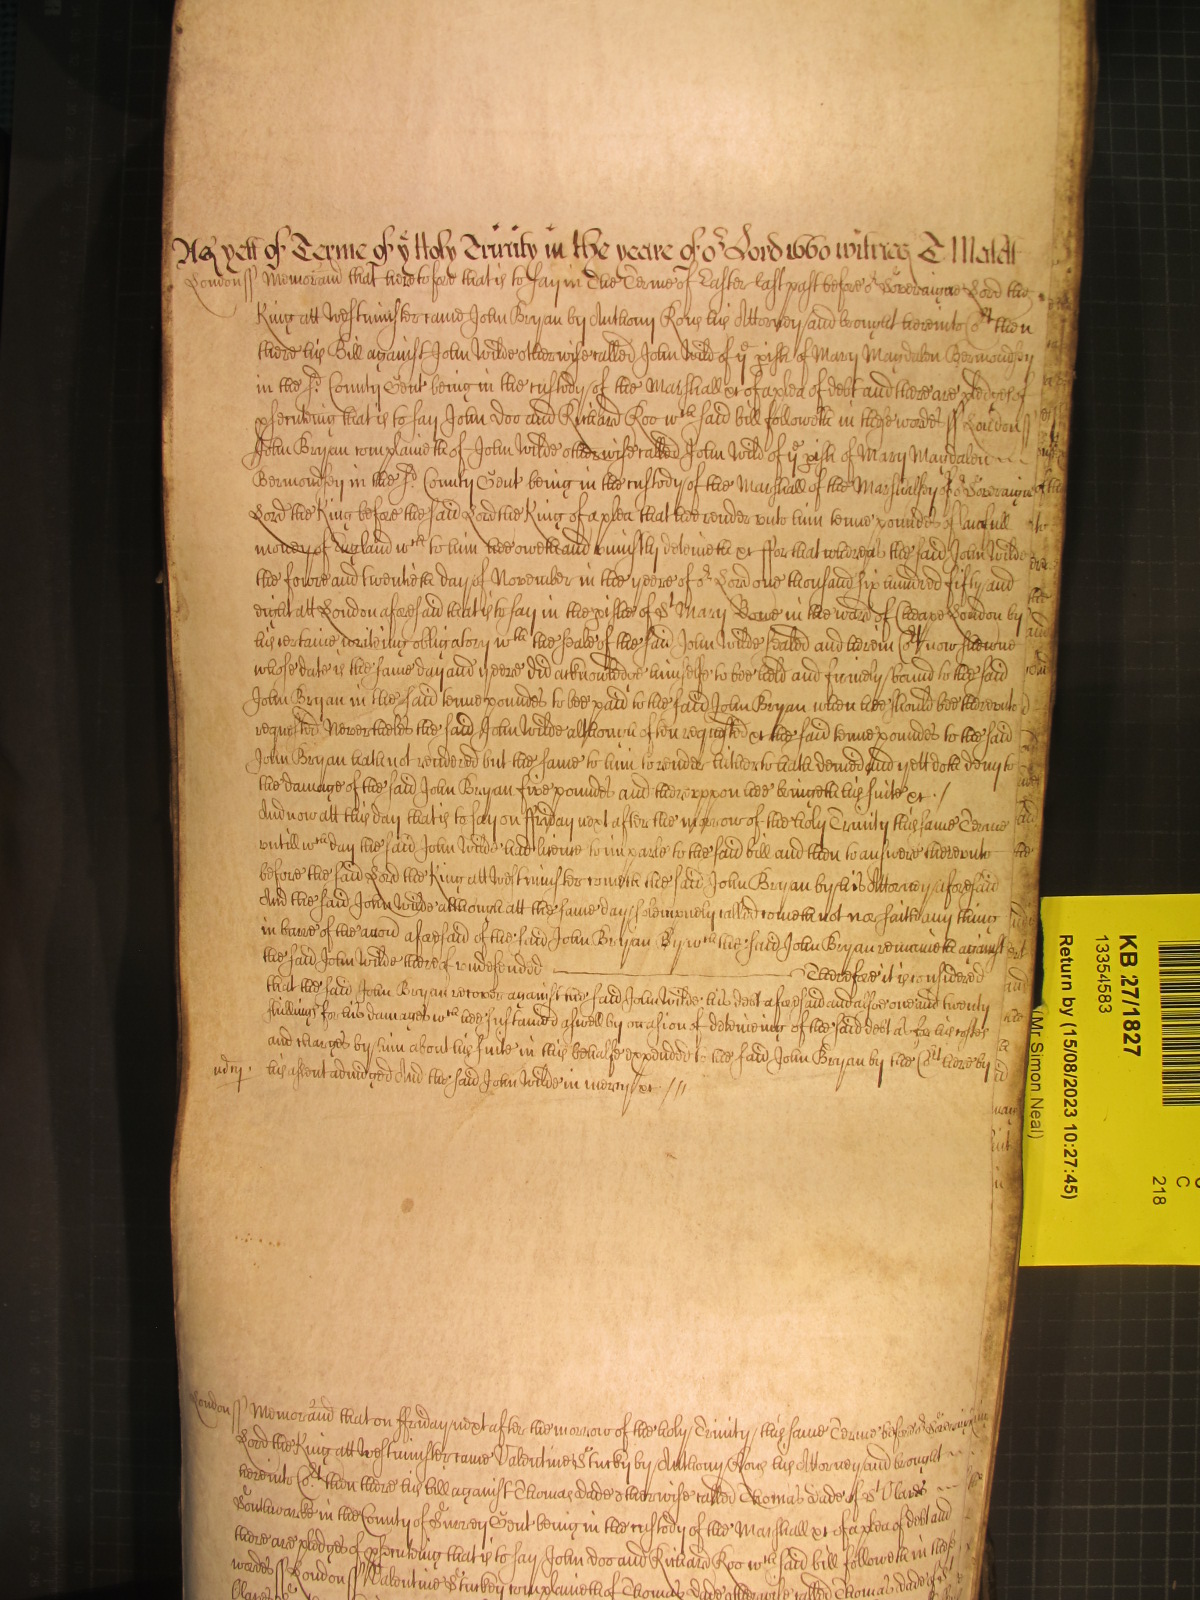 As yett of Terme of yͤ Holy Trinity in the yeare of oʳ Lord 1660 witnes T Malett
London ss Memorand that heretofore that is to say in the Terme of Easter last past before oʳ Soveraigne Lord the
King att Westminster came John Bryan by Anthony Rous his Attorney and brought here into Coʳt then
there his Bill against John Wilde otherwise called John Wild of yͤ pish of Mary Magdalen Bermondsey
in the sᵈ County Gent being in the custody of the Marshall &c of a plea of debt and there are pledges of
psecuting that is to say John Doo and Richard Roo wᶜʰ said bill followeth in these wordes ss London ss
John Bryan complaineth of John Wilde otherwise called John Wild of yͤ pish of Mary Magdalen
Bermondsey in the sᵈ County Gent being in the custody of the Marshall of the Marshalsey of oʳ Soveraigne
Lord the King before the said Lord the King of a plea that hee render unto him tenne poundes of lawfull
money of England wᶜʰ to him hee oweth and uniustly deteineth &c ffor that whereas the said John Wilde
the fowre and twentieth day of November in the yeere of oʳ Lord one thousand six hundred fifty and
eight att London aforesaid that is to say in the pishe of Sᵗ Mary Bowe in the ward of Cheape London by
his certaine writeing obligatory wᵗʰ the seale of the said John Wilde sealed and herein Coʳt now shewne
whose date is the same day and yeere did acknowledge himselfe to bee held and firmely bound to the said
John Bryan in the said tenne poundes to bee paid to the said John Bryan when hee should bee thereunto
requested Neverthelesse the said John Wilde although often requested &c the said tenne poundes to the said
John Bryan hath not rendered but the same to him to render hitherto hath denied and yett doth deny to
the damage of the said John Bryan five poundes and thereuppon hee bringeth his suite &c /
And now att this day that is to say on ffriday next after the morrow of the holy Trinity this same Terme
untill wᶜʰ day the said John Wilde had licence to imparle to the said bill and then to answere thereunto
before the said Lord the King att Westminster cometh the said John Bryan by his Attorney aforesaid
And the said John Wilde although att the same day solempnely called cometh not nor saith any thing
in barre of the accon aforesaid of the said John Bryan By wᶜʰ the said John Bryan remaineth against
the said John Wilde thereof undefended Therefore it is considered
that the said John Bryan recover against the said John Wilde his debt aforesaid and alsoe one and twenty
shillings for his damages wᶜʰ hee sustained aswell by occasion of deteineing of the said debt as for his costes
and charges by him about his suite in this behalfe expended to the said John Bryan by the Coʳt here by
his assent adiudged And the said John Wilde in mercy &c ///
London ss Memorand that on ffriday next after the morrow of the holy Trinity this same Terme before oʳ Soveraigne
Lord the King att Westminster came Valentine Stucky by Anthony Rous his Attorney and brought
here into Coʳt then there his bill against Thomas Dade otherwise called Thomas Dade of Sᵗ Olaves
Southwarke in the County of Surrey Gent being in the custody of the Marshall &c of a plea of debt and
there are pledges of psecuting that is to say John Doo and Richard Roo wᶜʰ said bill followeth in these
wordes ss London ss Valentine Stuckey complaineth of Thomas Dade otherwise called Thomas Dade of Sᵗ
KB 27/1827
13354583
Return by (15/08/2023 10:27:45)
(Mr Simon Neal)
C
218